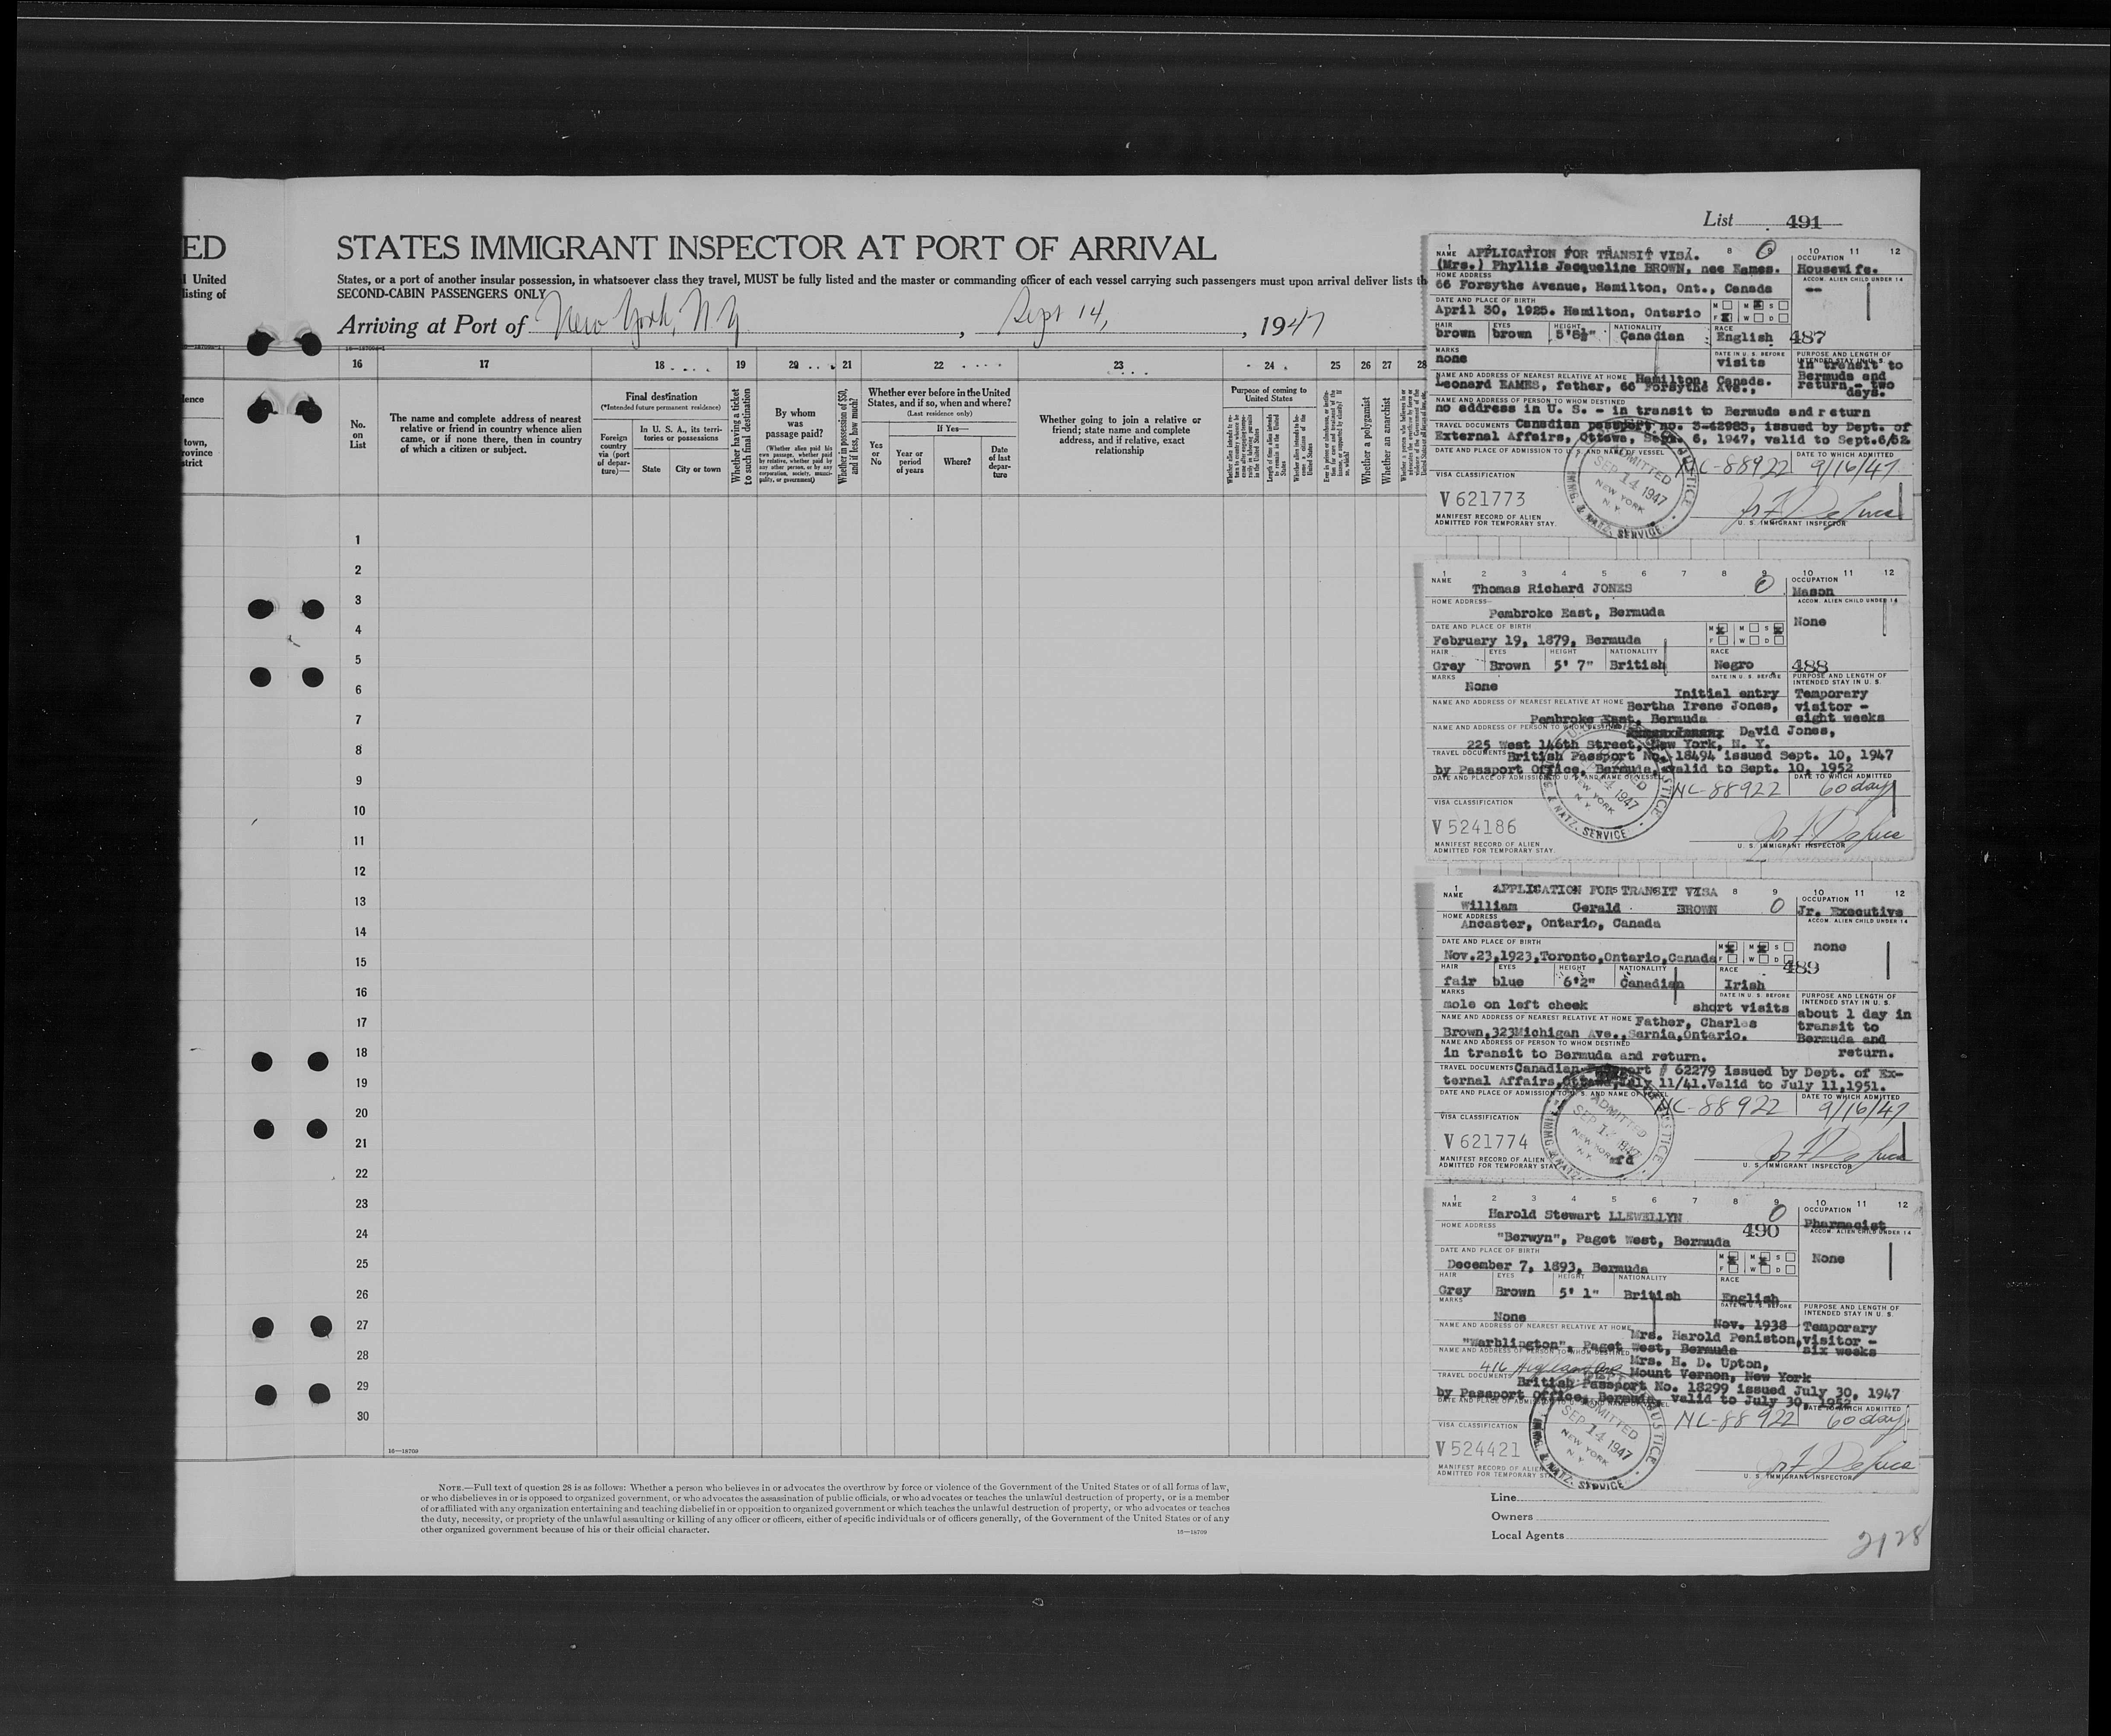 List 491
ED
STATES IMMIGRANT INSPECTOR AT PORT OF ARRIVAL
l United
listing of
States, or a port of another insular possession, in whatsoever class they travel, MUST be fully listed and the master or commanding officer of each vessel carrying such passengers must upon arrival deliver lists th
SECOND-CABIN PASSENGERS ONLY
Arriving at Port of New York, N.Y. , Sept 14, , 1947
16 17 18 19 20 21 22 23 24 25 26 27 28
dence
town,
province
strict
No.
on
List
The name and complete address of nearest
relative or friend in country whence alien
came, or if none there, then in country
of which a citizen or subject.
Final destination
(*Intended future permanent residence)
Foreign
country
via (port
of depar-
ture)—
In U. S. A., its terri-
tories or possessions
State
City or town
Whether having a ticket
to such final destination
By whom
was
passage paid?
(Whether alien paid his
own passage, whether paid
by relative, whether paid by
any other person, or by any
corporation, society, munici-
pality, or government)
Whether in possession of $50,
and if less, how much?
Whether ever before in the United
States, and if so, when and where?
(Last residence only)
If Yes—
Yes
or
No
Year or
period
of years
Where?
Date
of last
depar-
ture
Whether going to join a relative or
friend; state name and complete
address, and if relative, exact
relationship
Purpose of coming to
United States
Whether a polygamist
Whether an anarchist
1
2
3
4
5
6
7
8
9
10
11
12
13
14
15
16
17
18
19
20
21
22
23
24
25
26
27
28
29
30
16—18709
NOTE.—Full text of question 28 is as follows: Whether a person who believes in or advocates the overthrow by force or violence of the Government of the United States or of all forms of law,
or who disbelieves in or is opposed to organized government, or who advocates the assassination of public officials, or who advocates or teaches the unlawful destruction of property, or is a member
of or affiliated with any organization entertaining and teaching disbelief in or opposition to organized government or which teaches the unlawful destruction of property, or who advocates or teaches
the duty, necessity, or propriety of the unlawful assaulting or killing of any officer or officers, either of specific individuals or of officers generally, of the Government of the United States or of any
other organized government because of his or their official character.
16—18709
1 2 3 4 5 6 7 8 9 10 11 12
NAME APPLICATION FOR TRANSIT VISA. 0 OCCUPATION
(Mrs.) Phyllis Jacqueline BROWN, nee Eames. Housewife.
HOME ADDRESS ACCOM. ALIEN CHILD UNDER 14
66 Forsythe Avenue, Hamilton, Ont., Canada --
DATE AND PLACE OF BIRTH M M S
April 30, 1925. Hamilton, Ontario F W D
HAIR EYES HEIGHT NATIONALITY RACE
brown brown 5'5½" Canadian English 487
MARKS DATE IN U. S. BEFORE PURPOSE AND LENGTH OF
INTENDED STAY IN U. S.
none visits in transit to
Bermuda and
return - two
days.
NAME AND ADDRESS OF NEAREST RELATIVE AT HOME Hamilton, Canada.
Leonard EAMES, father, 66 Forsythe Ave.,
NAME AND ADDRESS OF PERSON TO WHOM DESTINED
no address in U. S. - in transit to Bermuda and return
TRAVEL DOCUMENTS Canadian passport no. 3-42983, issued by Dept. of
External Affairs, Ottawa, Sept. 6, 1947, valid to Sept.6/52
DATE AND PLACE OF ADMISSION TO U. S. AND NAME OF VESSEL DATE TO WHICH ADMITTED
NC-88922 9/16/47
VISA CLASSIFICATION
V 621773
ADMITTED
SEP 14 1947
NEW YORK
N. Y.
IMMG. & NATZ. SERVICE
MANIFEST RECORD OF ALIEN
ADMITTED FOR TEMPORARY STAY.
U. S. IMMIGRANT INSPECTOR
1 2 3 4 5 6 7 8 9 10 11 12
NAME Thomas Richard JONES 0 OCCUPATION
Mason
HOME ADDRESS ACCOM. ALIEN CHILD UNDER 14
Pembroke East, Bermuda None
DATE AND PLACE OF BIRTH M M S
February 19, 1879, Bermuda F W D
HAIR EYES HEIGHT NATIONALITY RACE
Grey Brown 5' 7" British Negro 488
MARKS DATE IN U. S. BEFORE PURPOSE AND LENGTH OF
INTENDED STAY IN U. S.
None Initial entry Temporary
visitor -
eight weeks
NAME AND ADDRESS OF NEAREST RELATIVE AT HOME Bertha Irene Jones,
Pembroke East, Bermuda
NAME AND ADDRESS OF PERSON TO WHOM DESTINED David Jones,
225 West 146th Street, New York, N. Y.
TRAVEL DOCUMENTS British Passport No. 18494 issued Sept. 10, 1947
by Passport Office, Bermuda, valid to Sept. 10, 1952
DATE AND PLACE OF ADMISSION TO U. S. AND NAME OF VESSEL DATE TO WHICH ADMITTED
NC-88922 60 days
VISA CLASSIFICATION
V 524186
MANIFEST RECORD OF ALIEN
ADMITTED FOR TEMPORARY STAY.
U. S. IMMIGRANT INSPECTOR
1 APPLICATION FOR TRANSIT VISA 8 9 10 11 12
NAME OCCUPATION
William Gerald BROWN 0 Jr. Executive
HOME ADDRESS ACCOM. ALIEN CHILD UNDER 14
Ancaster, Ontario, Canada none
DATE AND PLACE OF BIRTH M M S
Nov.23,1923,Toronto,Ontario,Canada F W D
489
HAIR EYES HEIGHT NATIONALITY RACE
fair blue 6'2" Canadian Irish
MARKS DATE IN U. S. BEFORE PURPOSE AND LENGTH OF
INTENDED STAY IN U. S.
mole on left cheek short visits about 1 day in
transit to
Bermuda and
return.
NAME AND ADDRESS OF NEAREST RELATIVE AT HOME Father, Charles
Brown,323Michigan Ave.,Sarnia,Ontario.
NAME AND ADDRESS OF PERSON TO WHOM DESTINED
in transit to Bermuda and return.
TRAVEL DOCUMENTS Canadian Passport # 62279 issued by Dept. of Ex-
ternal Affairs,Ottawa,July 11/41.Valid to July 11,1951.
DATE AND PLACE OF ADMISSION TO U. S. AND NAME OF VESSEL DATE TO WHICH ADMITTED
NC-88922 9/16/47
VISA CLASSIFICATION
V 621774
MANIFEST RECORD OF ALIEN
ADMITTED FOR TEMPORARY STAY
U. S. IMMIGRANT INSPECTOR
1 2 3 4 5 6 7 8 9 10 11 12
NAME Harold Stewart LLEWELLYN 0 OCCUPATION
490 Pharmacist
HOME ADDRESS ACCOM. ALIEN CHILD UNDER 14
"Berwyn", Paget West, Bermuda None
DATE AND PLACE OF BIRTH M M S
December 7, 1893, Bermuda F W D
HAIR EYES HEIGHT NATIONALITY RACE
Grey Brown 5' 1" British English
MARKS DATE IN U. S. BEFORE PURPOSE AND LENGTH OF
INTENDED STAY IN U. S.
None Nov. 1938 Temporary
visitor -
six weeks
NAME AND ADDRESS OF NEAREST RELATIVE AT HOME Mrs. Harold Peniston,
"Warblington", Paget West, Bermuda
NAME AND ADDRESS OF PERSON TO WHOM DESTINED Mrs. H. D. Upton,
416 Highland Ave Mount Vernon, New York
TRAVEL DOCUMENTS British Passport No. 18299 issued July 30, 1947
by Passport Office, Bermuda, valid to July 30, 1952
DATE AND PLACE OF ADMISSION TO U. S. AND NAME OF VESSEL DATE TO WHICH ADMITTED
NC-88922 60 days
VISA CLASSIFICATION
V 524421
ADMITTED
SEP 14 1947
NEW YORK
N. Y.
IMMG. & NATZ. SERVICE
MANIFEST RECORD OF ALIEN
ADMITTED FOR TEMPORARY STAY
U. S. IMMIGRANT INSPECTOR
Line
Owners
Local Agents
2128